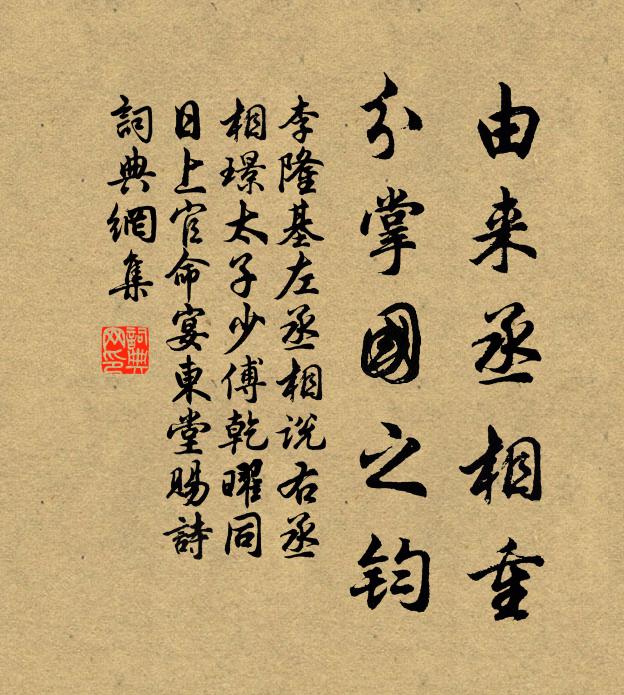 由来丞相重
分掌國之钧
李隆基左丞相说右丞
相璟太子少傅乾曜同
日上官命宴東堂賜詩
詞典網集
詞典
网印